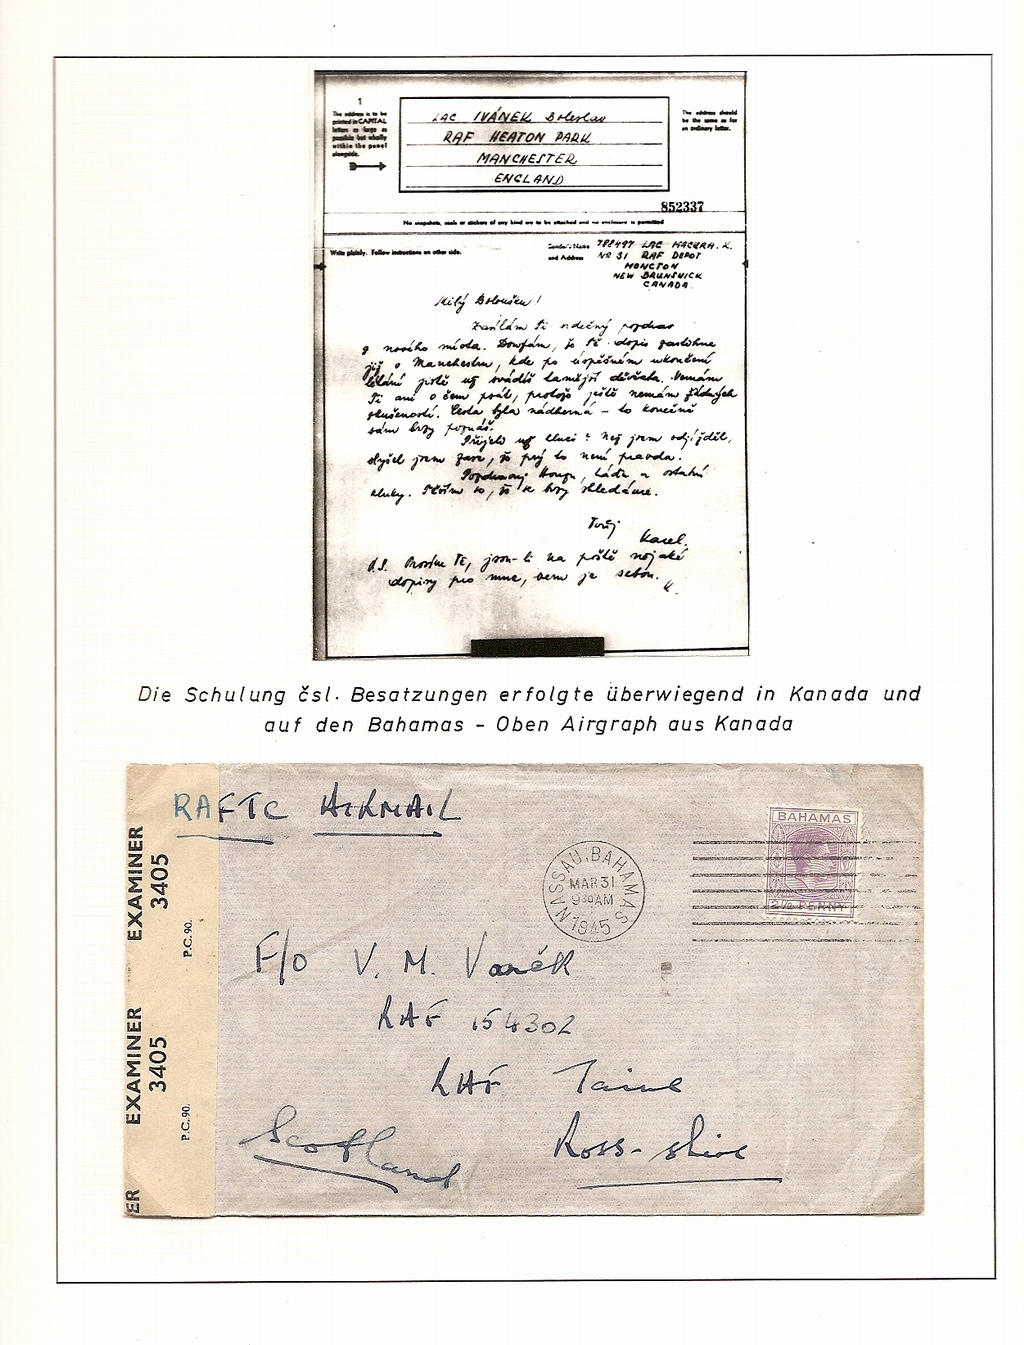 1
The address is to be
printed in CAPITAL
letters as large as
possible but wholly
within the panel
alongside.
LAC IVÁNEK Boleslav
RAF HEATON PARK
MANCHESTER
ENGLAND
The address should
be the same as for
an ordinary letter.
852337
No snapshots, seals or stickers of any kind are to be attached and no enclosure is permitted
Write plainly. Follow instructions on other side.
Sender's Name
and Address
788497 LAC MACURA. K.
No 31 RAF DEPOT
MONCTON
NEW BRUNSWICK
CANADA.
Milý Boloušku!
Zasílám Ti srdečný pozdrav
z nového místa. Doufám, že Tě dopis zastihne
již v Manchestru, kde po úspěšném ukončení
létání jistě už svádíš tamější děvčata. Nemám
Ti ani o čem psát, protože ještě nemám žádných
zkušeností. Cesta byla nádherná – to konečně
sám brzy poznáš.
Přijeli už kluci? Než jsem odjížděl,
slyšel jsem zase, že prý to není pravda.
Pozdravuj, Láďu a ostatní
kluky. Těším se, že se brzy shledáme.
Tvůj
Karel.
P.S. Prosím Tě, jsou-li na poště nějaké
dopisy pro mne, vem je sebou.
K.
Die Schulung čsl. Besatzungen erfolgte überwiegend in Kanada und
auf den Bahamas – Oben Airgraph aus Kanada
RAFTC AIRMAIL
EXAMINER 3405
P.C. 90.
EXAMINER 3405
P.C. 90.
ER
NASSAU, BAHAMAS
MAR 31
9 30 AM
1945
BAHAMAS
2½ PENNY
F/O V. M. Vaněk
RAF 154302
RAF Tain
Ross-shire
Scotland